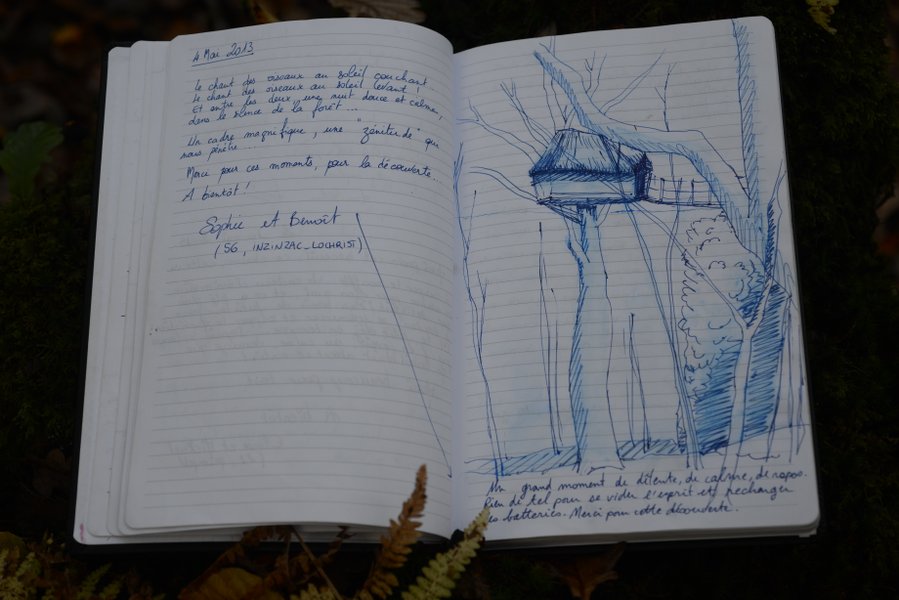 4 Mai 2013
Le chant des oiseaux au soleil couchant
Le chant des oiseaux au soleil levant !
Et entre les deux, une nuit douce et calme,
dans le silence de la forêt...
Un cadre magnifique, une "zénitude" qui
nous pénètre...
Merci pour ces moments, pour la découverte...
A bientôt !
Sophie et Benoît
(56, INZINZAC-LOCHRIST)
Un grand moment de détente, de calme, de repos.
Rien de tel pour se vider l'esprit et recharger
les batteries. Merci pour cette découverte.